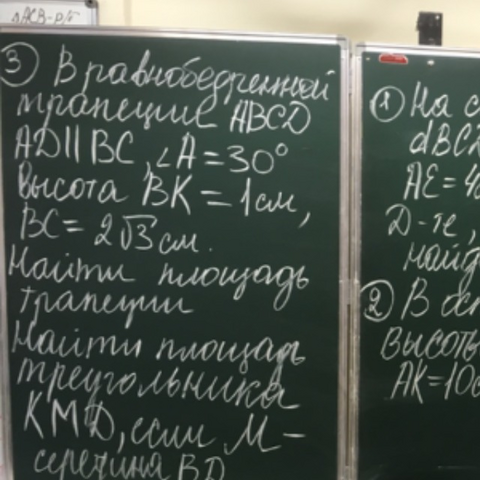 ΔАСВ-р/б
③ В равнобедренной
трапеции ABCD
AD||BC, ∠A=30°
высота BK=1см,
BC=2√3 см.
Найти площадь
трапеции
Найти площадь
треугольника
KMD, если M-
середина BD
① На с
ABCD
AE=4
Д-те,
найд
② В ост
высоты
AK=10с